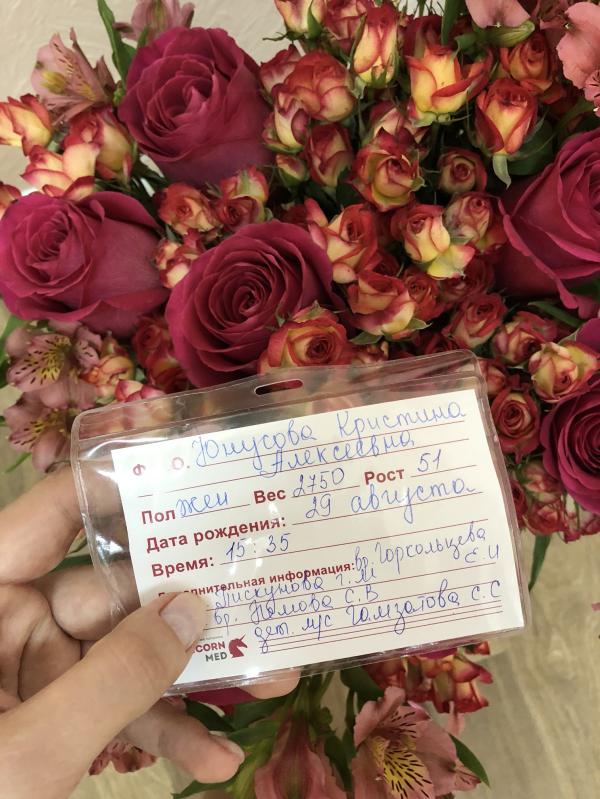 Ф.И.О. Юнусова Кристина
Алексеевна
Пол жен Вес 2750 Рост 51
Дата рождения: 29 августа
Время: 15:35
Дополнительная информация: вр. Горкольцева
Пискунова Г.М Е.И
вр. Немова С.В
дет. м/с Гамзатова С.С
CORN
MED